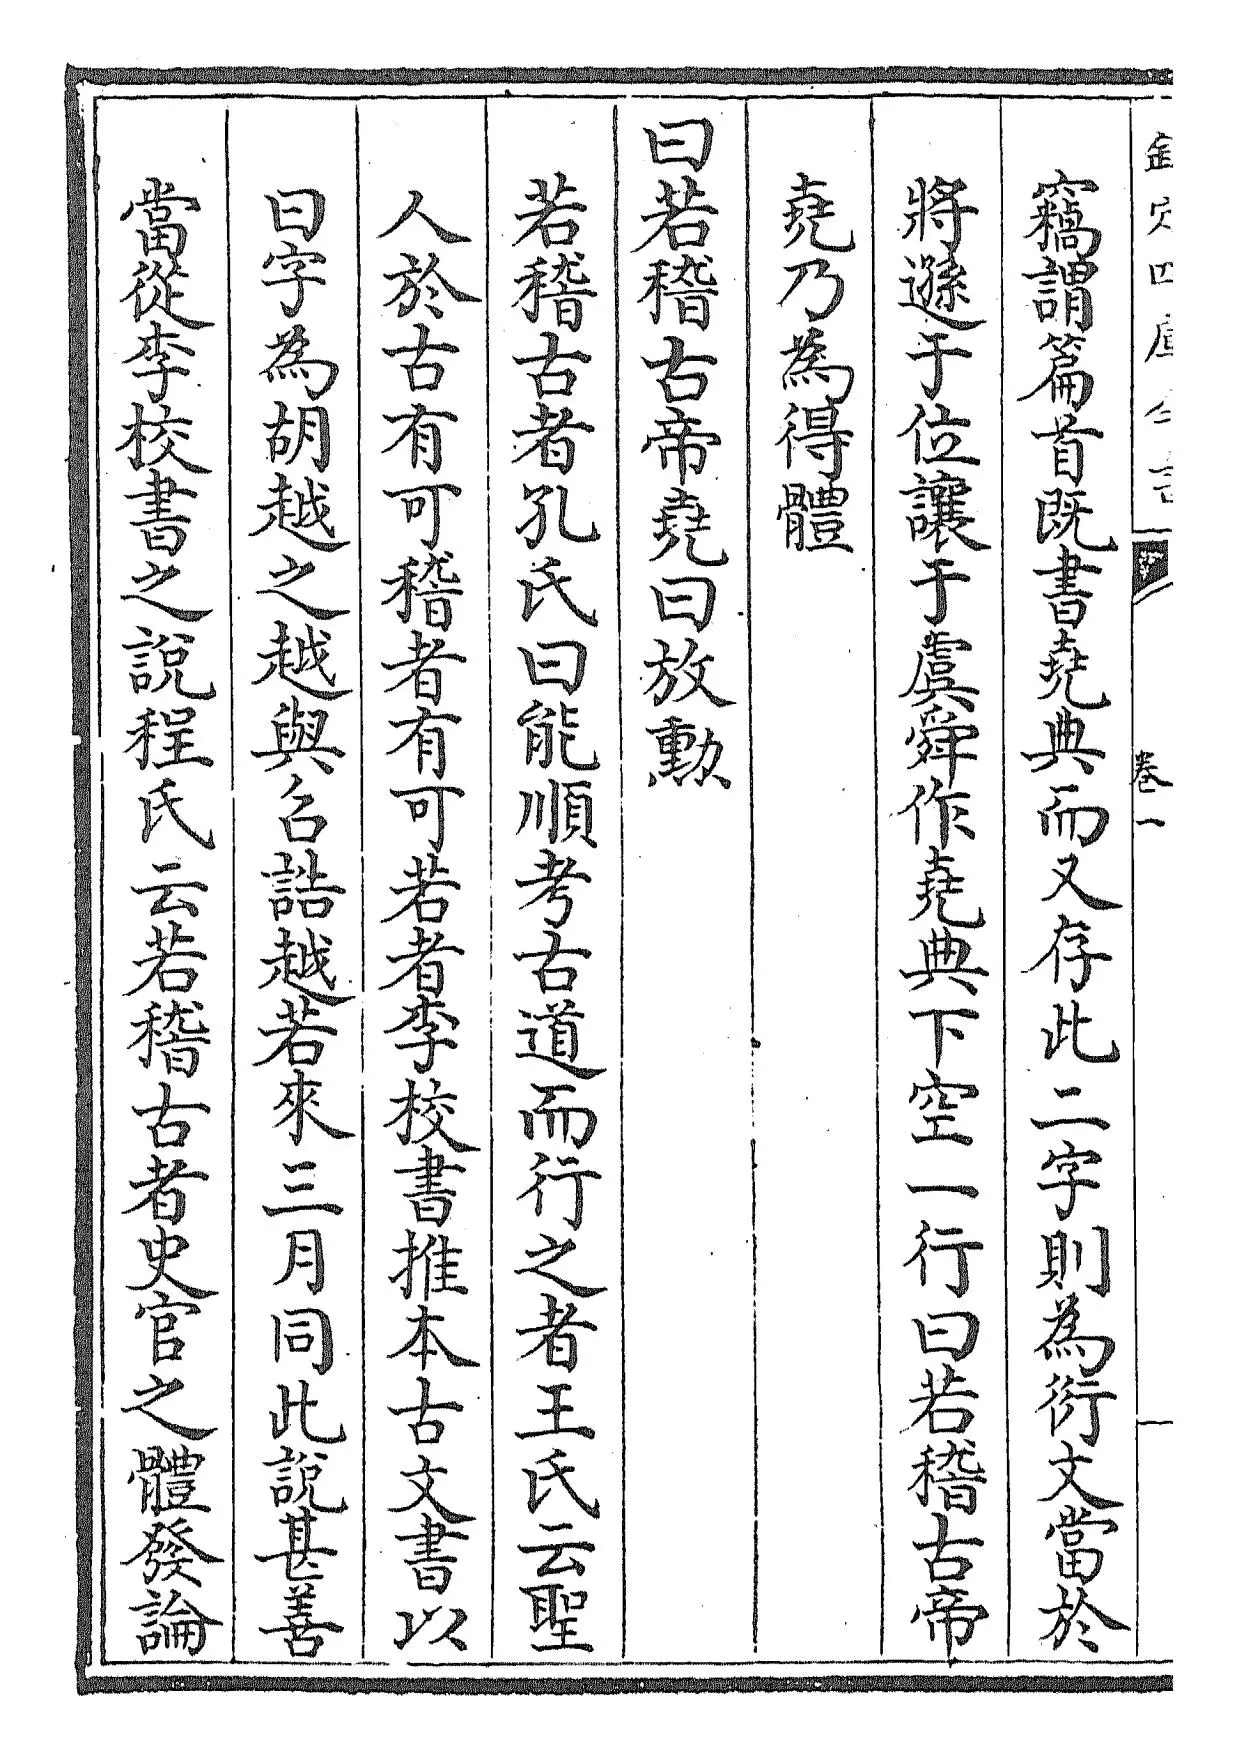 欽定四庫全書
卷一
竊謂篇首既書堯典而又存此二字則為衍文當於
將遜于位讓于虞舜作堯典下空一行曰若稽古帝
堯乃為得體
曰若稽古帝堯曰放勲
若稽古者孔氏曰能順考古道而行之者王氏云聖
人於古有可稽者有可若者李校書推本古文書以
曰字為胡越之越與召誥越若來三月同此說甚善
當從李校書之說程氏云若稽古者史官之體發論